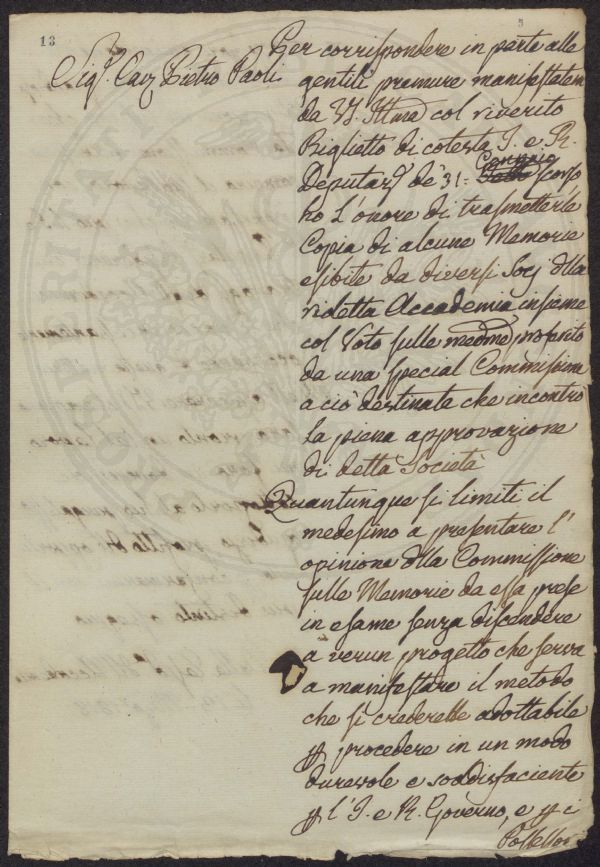 13
5
Sig.r Cav Pietro Paoli
Per corrispondere in parte alle
gentili premure manifestatemi
da VS. Illma col riverito
Biglietto di cotesta I. e R.
Deputaz.e de' 31. Gennaio scorso
ho L'onore di trasmetterle
Copia di alcune Memorie
esibite da diversi Socj della
ridetta Accademia insieme
col Voto sulle medme proferito
da una special Commissione
a ciò destinata che incontrò
la piena approvazione
di detta Società
Quantunque si limiti il
medesimo a presentare l'
opinione della Commissione
sulle Memorie da essa prese
in esame senza discendere
a verun progetto che serva
a manifestare il metodo
che si crederebbe adottabile
p procedere in un modo
durevole e soddisfaciente
p l'I. e R. Governo, e p i
Possessori